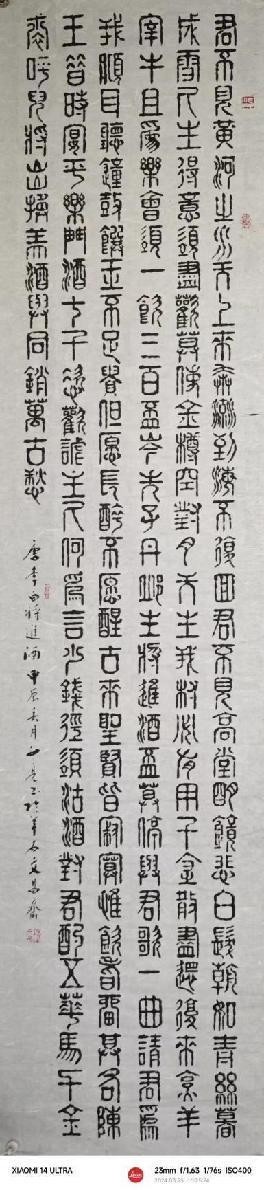 君不見黃河之水天上來奔流到海不復回君不見高堂明鏡悲白髮朝如青絲暮
成雪人生得意須盡歡莫使金樽空對月天生我材必有用千金散盡還復來烹羊
宰牛且為樂會須一飲三百杯岑夫子丹邱生將進酒杯莫停與君歌一曲請君為
我傾耳聽鐘鼓饌玉不足貴但願長醉不願醒古來聖賢皆寂寞惟飲者留其名陳
王昔時宴平樂斗酒十千恣歡謔主人何為言少錢徑須沽酒對君酌五華馬千金
裘呼兒將出換美酒與同銷萬古愁
唐李白將進酒甲辰春月
XIAOMI 14 ULTRA
23mm f/1.63 1/76s ISO400